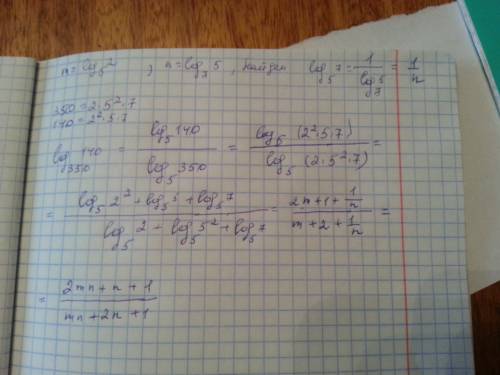 m = log₅ 2 ; n = log₇ 5 , найдем log₅ 7 = 1/(log₇ 5) = 1/n
350 = 2·5²·7
140 = 2²·5·7
log₃₅₀ 140 = (log₅ 140)/(log₅ 350) = (log₅ (2²·5·7))/(log₅ (2·5²·7)) =
= (log₅ 2² + log₅ 5 + log₅ 7)/(log₅ 2 + log₅ 5² + log₅ 7) = (2m + 1 + 1/n)/(m + 2 + 1/n) =
= (2mn + n + 1)/(mn + 2n + 1)